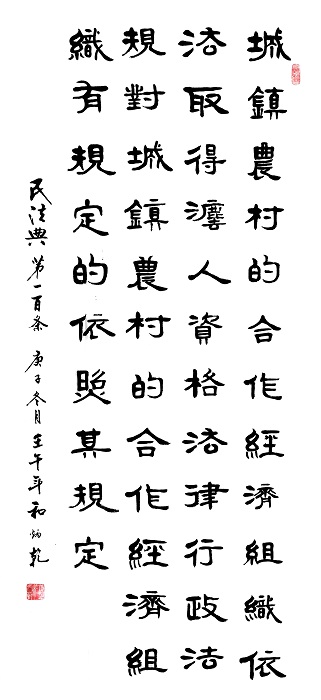 城鎮農村的合作經濟組織依
法取得灋人資格法律行政法
規對城鎮農村的合作經濟組
織有規定的依照其規定
民法典第一百条 庚子冬月 壬午年 和炳乾